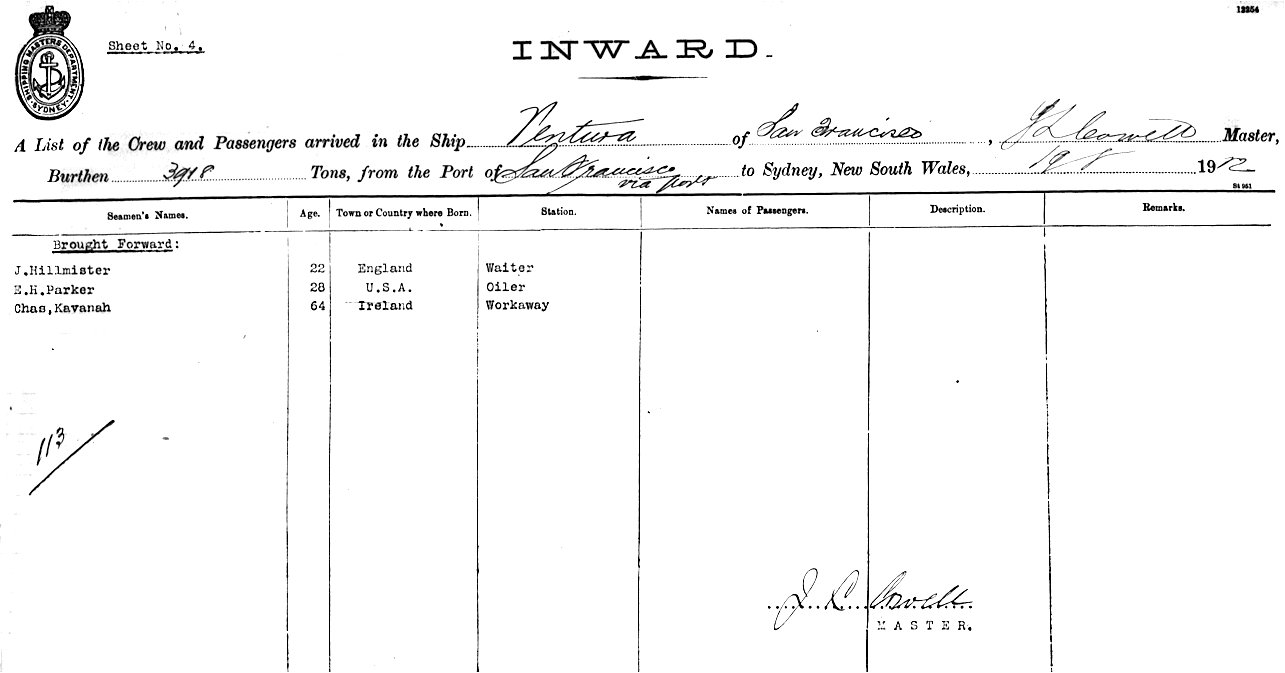 12254
SHIPPING MASTERS DEPARTMENT SYDNEY
Sheet No. 4.
INWARD.
A List of the Crew and Passengers arrived in the Ship Ventura of San Francisco, J L Cowell Master,
Burthen 3918 Tons, from the Port of San Francisco via ports to Sydney, New South Wales, 19 8 1912
St 951
Seamen's Names. Age. Town or Country where Born. Station. Names of Passengers. Description. Remarks.
Brought Forward:
J.Hillmister 22 England Waiter
E.H.Parker 28 U.S.A. Oiler
Chas,Kavanah 64 Ireland Workaway
113
Cowell
MASTER.